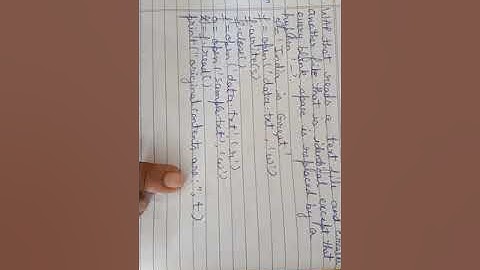 WAP that reads a text file and creates
another file that is identical except that
every blank space is replaced by a
hyphen '-'.
s = ' India is Great '
f = open('data.txt','w')
f.write(s)
f.close()
f = open('data.txt','r')
a = open('sample.txt','w')
t = f.read()
print("original contents are:", t)